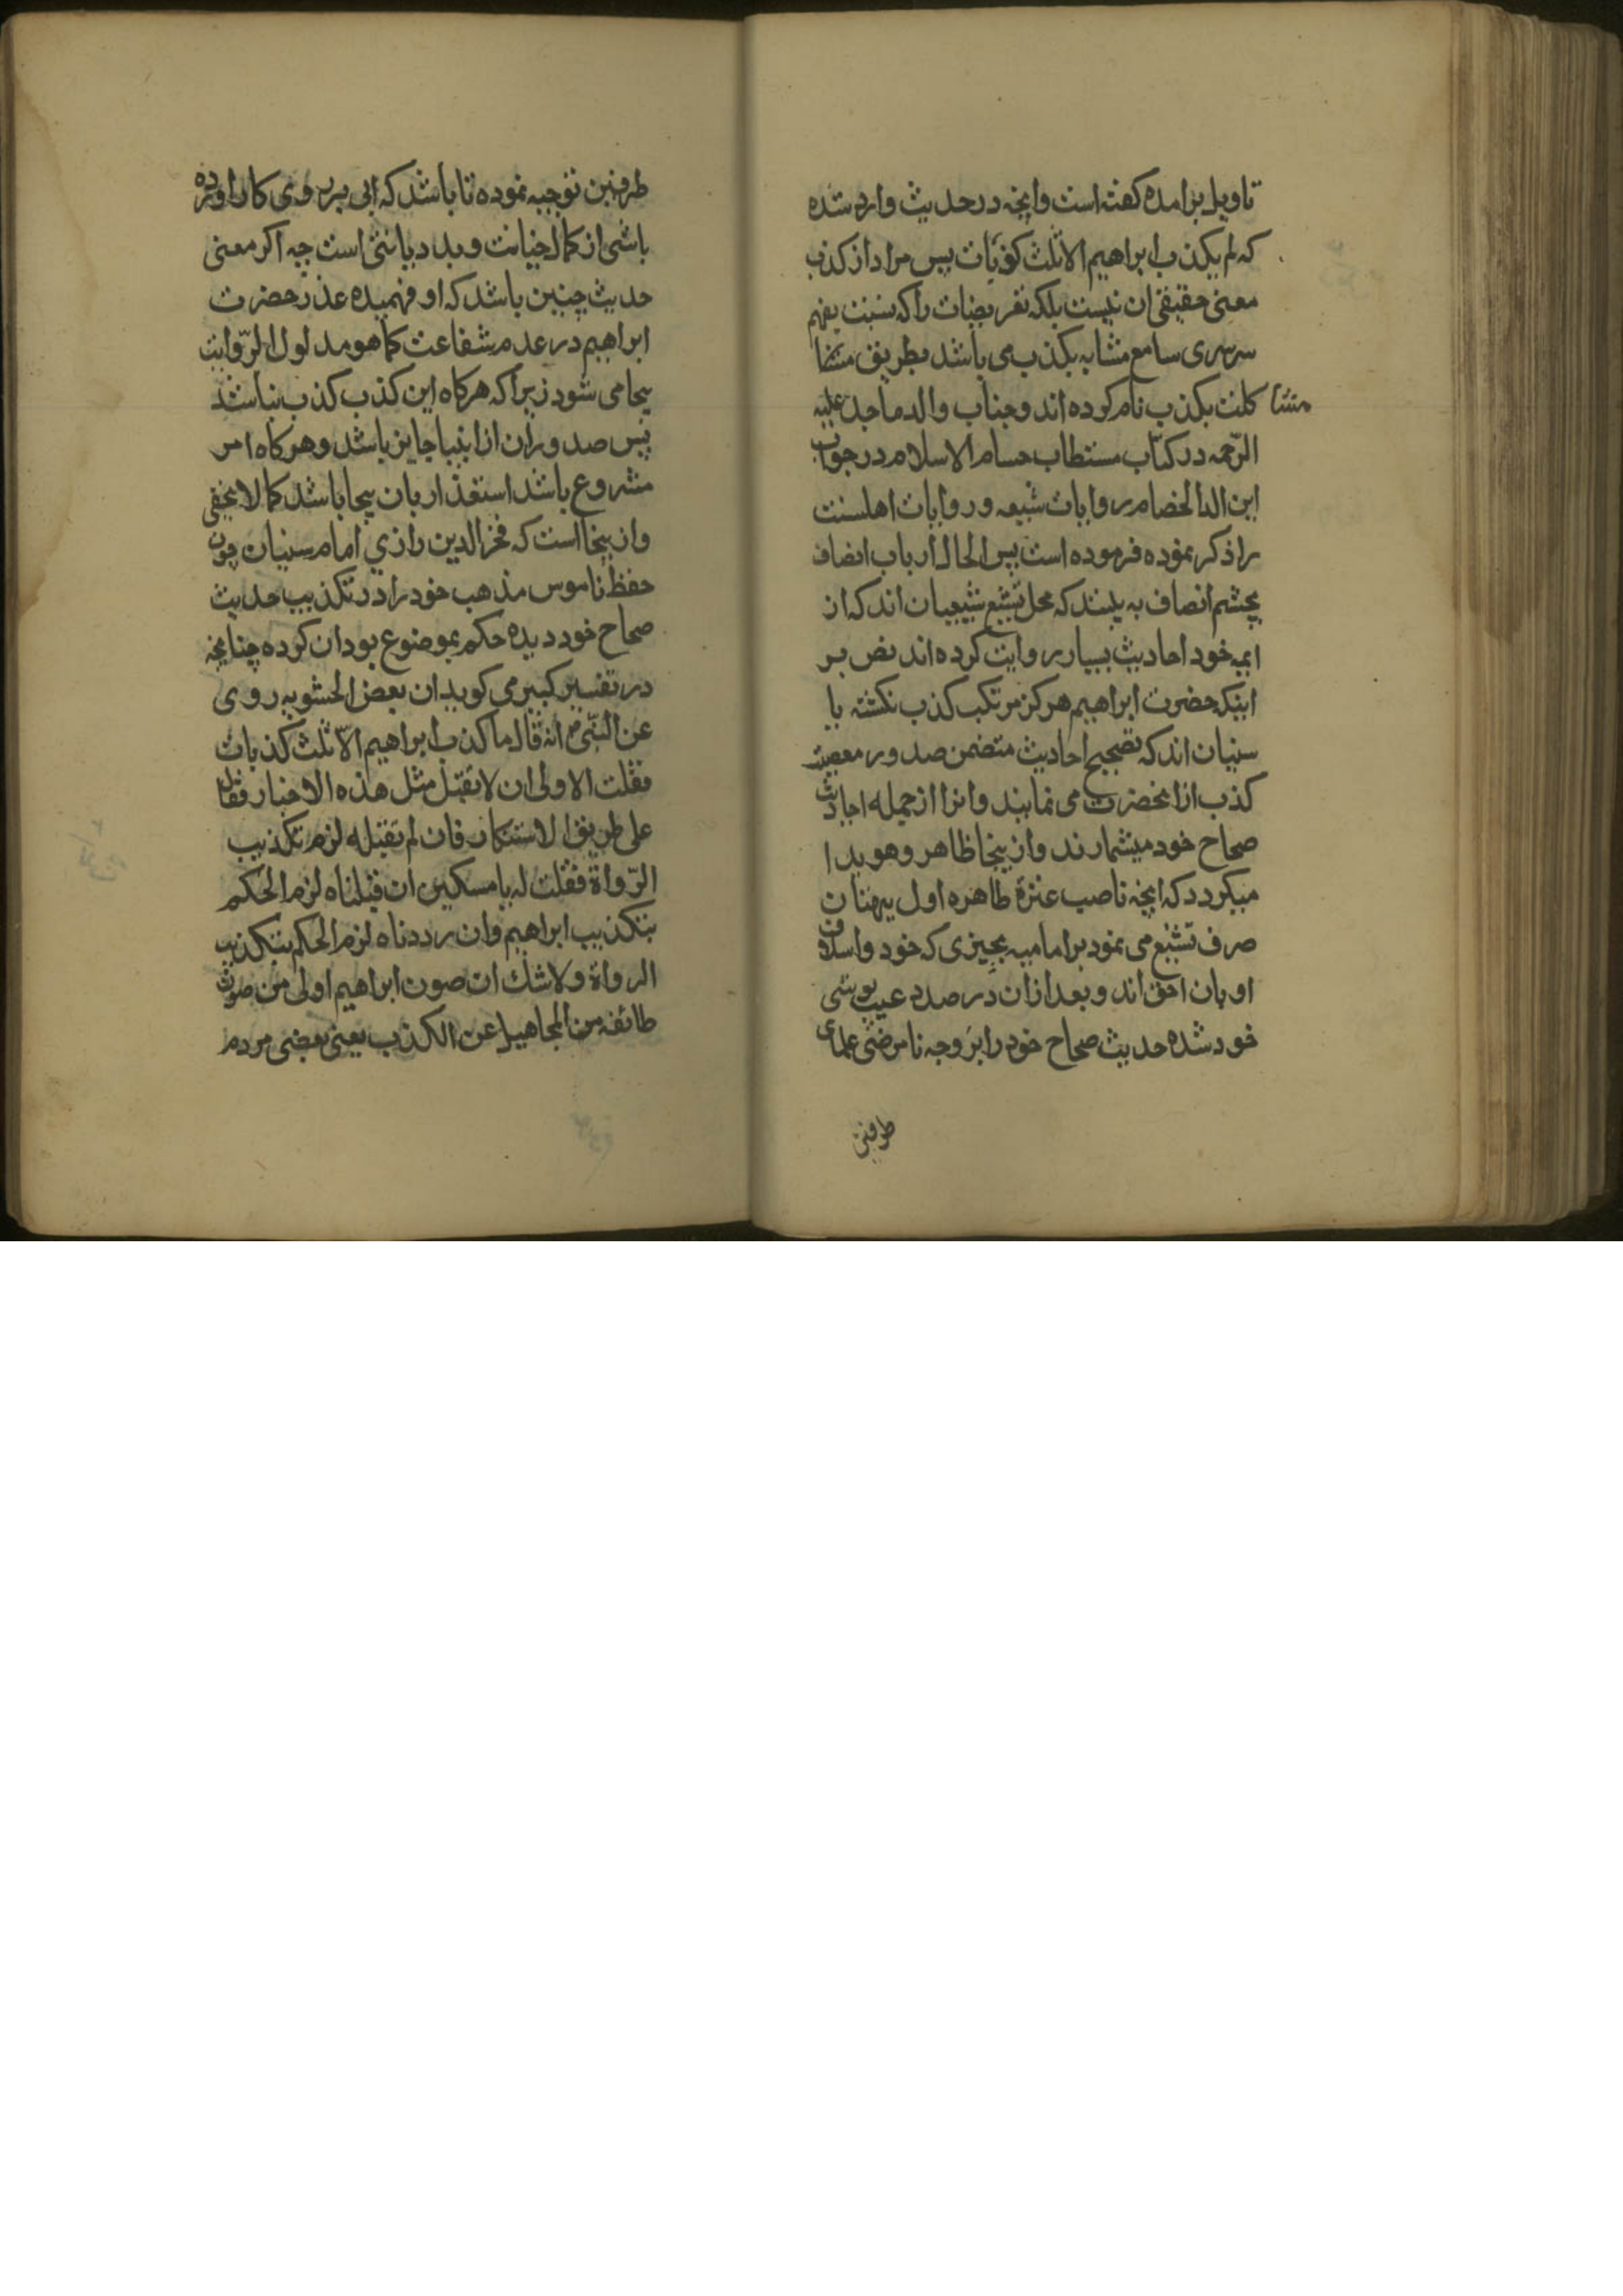 تاویل برامده کفته است وانچه درحدیث وارد شده
که لم یکذب ابراهیم الا ثلث کذبات پس مراد از کذب
معنی حقیقی ان نیست بلکه تعریضات را که بنسبت بفهم
سرسری سامع مشابه بکذب می باشد بطریق
مشا کلت بکذب نام کرده اند وجناب والد ماجد علیه
الرّحمه در کتاب مستطاب حسام الاسلام در جواب
این الد الخصام روایات شیعه و روایات اهلسنت
را ذکر نموده فرموده است پس الحال ارباب انصاف
بچشم انصاف به بینند که محل تشنیع شیعیان اند که از
ایمه خود احادیث بسیار روایت کرده اند نص بر
اینکه حضرت ابراهیم هرکز مرتکب کذب نکشته یا
سنیان اند که تصحیح احادیث متضمن صدور معصیت
کذب ازانحضرت می نمایند وانرا ازجمله احادیث
صحاح خود میشمارند وازینجا ظاهر وهویدا
میکردد که انچه ناصب عترة طاهره اول ببهتان
صرف تشنیع می نمود بر امامیه بچیزی که خود واسلاف
او بان احق اند و بعد ازان در صدد عیب پوشی
خود شده حدیث صحاح خود را بر وجه نامرضی علمای
طرفین
طرفین توجیه نموده تا باشد که ابی بر روی کار اورده
باشی از کمال خیانت و بد دیانتی است چه اکر معنی
حدیث چنین باشد که او فهمیده عذر حضرت
ابراهیم در عدم شفاعت کما هو مدلول الرّوایت
بیجا می شود زیرا که هرکاه این کذب کذب نباشد
پس صدور ان از انبیا جایز باشد وهرکاه امر
مشروع باشد استعذار بان بیجا باشد کما لا یخفی
وازینجا است که فخر الدین رازي امام سنیان چون
حفظ ناموس مذهب خود را در تکذیب حدیث
صحاح خود دیده حکم بموضوع بودان کرده چنانچه
در تفسیر کبیر می کوید ان بعض الحشویه روی
عن النّبی انه قال ما کذب ابراهیم الّا ثلث کذبات
فقلت الاولی ان لا تقبل مثل هذه الاخبار فقال
علی طریق الاستنکار فان لم تقبله لزم تکذیب
الرّواة فقلت له یا مسکین ان قبلناه لزم الحکم
بتکذیب ابراهیم وان رددناه لزم الحکم بتکذیب
الرواة ولا شك ان صون ابراهیم اولی من صون
طائفه من المجاهیل عن الکذب یعنی بعضی مردم